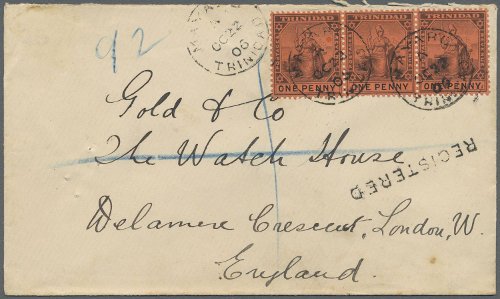 92
OC 22
06
TRINIDAD
TRINIDAD TRINIDAD TRINIDAD
ONE PENNY ONE PENNY ONE PENNY
Gold & Co
The Watch House
REGISTERED
Delamere Crescent, London, W.
England.